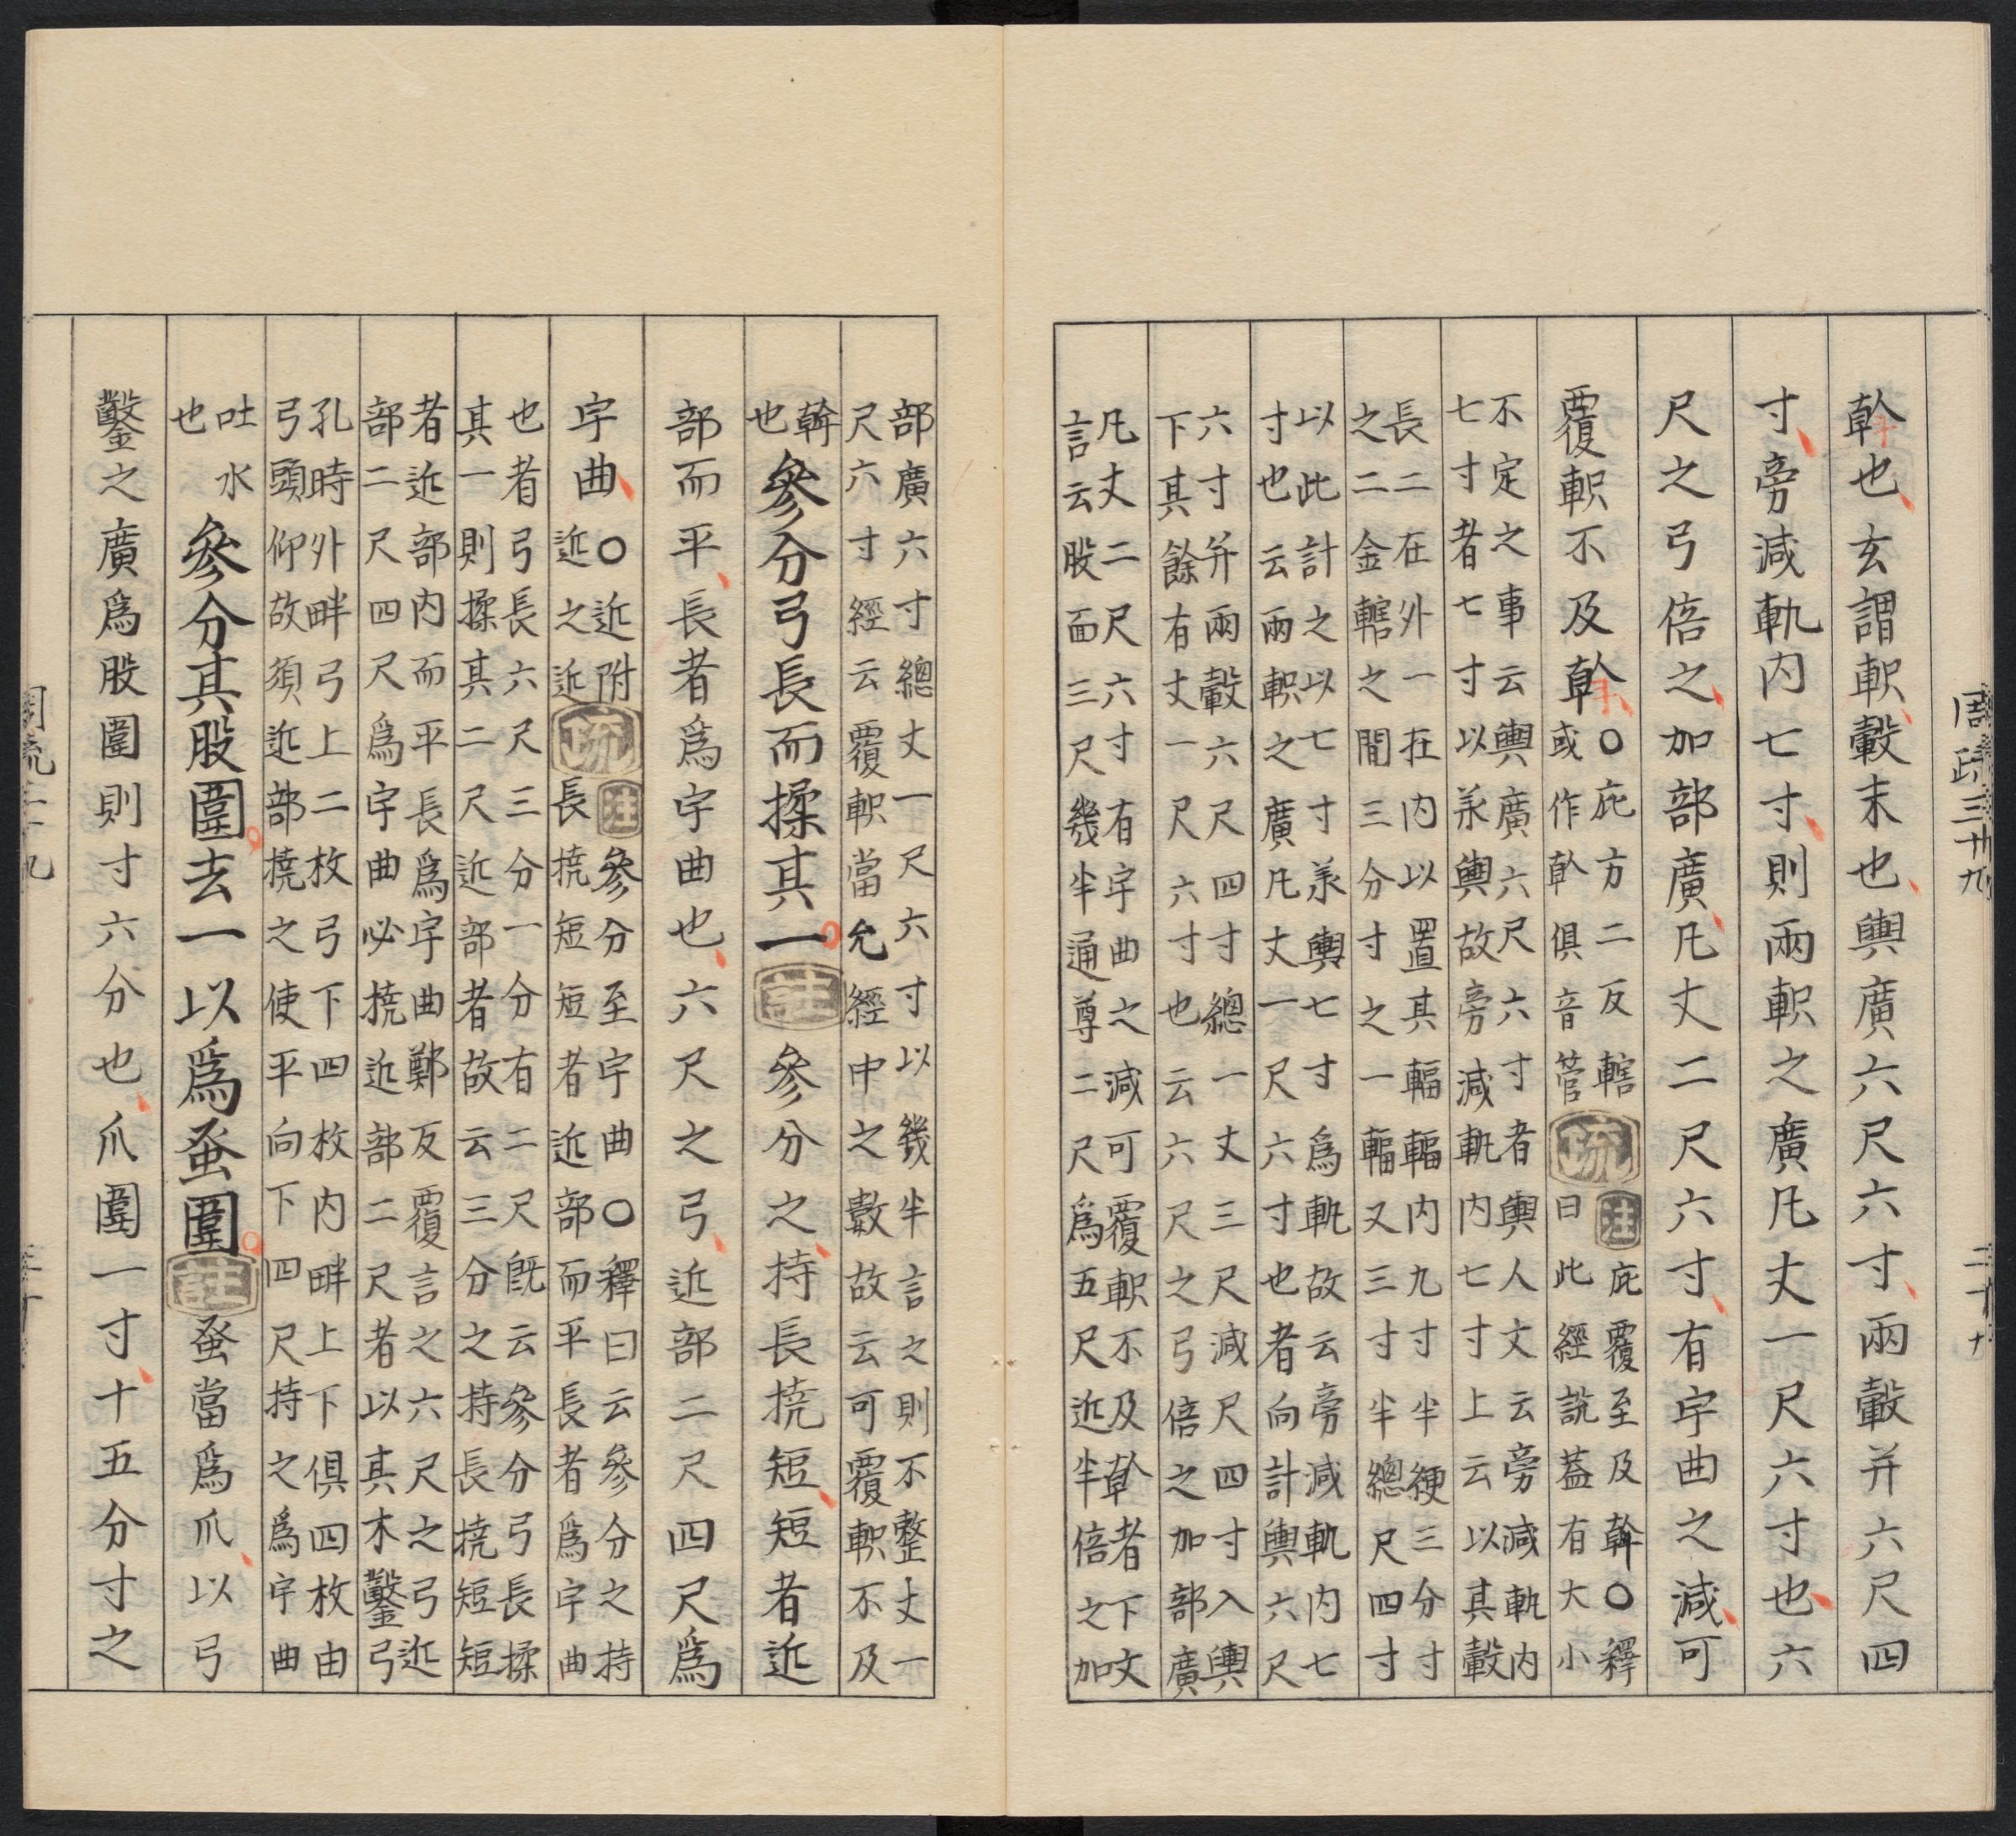 周疏三十九
幹也玄謂軹轂末也輿廣六尺六寸兩轂并六尺四
寸旁減軌内七寸則兩軹之廣凡丈一尺六寸也六
尺之弓倍之加部廣凡丈二尺六寸有宇曲之減可
覆軹不及幹○庇方二反轄
或作幹俱音管疏注庇覆至及幹○釋
曰此經說蓋有大小
不定之事云輿廣六尺六寸者輿人文云旁減軌内
七寸者七寸以羕輿故旁減軌内七寸上云以其轂
長二在外一在内以置其輻輻内九寸半綆三分寸
之二金轄之間三分寸之一輻又三寸半總尺四寸
以此計之以七寸羕輿七寸爲軌故云旁減軌内七
寸也云兩軹之廣凡丈一尺六寸也者向計輿六尺
六寸并兩轂六尺四寸總一丈三尺減尺四寸入輿
下其餘有丈一尺六寸也云六尺之弓倍之加部廣
凡丈二尺六寸有宇曲之減可覆軹不及幹者下文
言云股面三尺幾半通尊二尺爲五尺近半倍之加
部廣六寸總丈一尺六寸以幾半言之則不整丈一
尺六寸經云覆軹當允經中之數故云可覆軹不及
幹
也參分弓長而揉其一註參分之持長撓短短者近
部而平長者爲宇曲也六尺之弓近部二尺四尺爲
宇曲○近附
近之近疏注參分至宇曲○釋曰云參分之持
長撓短短者近部而平長者爲宇曲
也者弓長六尺三分一分有二尺旣云參分弓長揉
其一則揉其二尺近部者故云三分之持長撓短短
者近部内而平長爲宇曲鄭反覆言之六尺之弓近
部二尺四尺爲宇曲必撓近部二尺者以其木鑿弓
孔時外畔弓上二枚弓下四枚内畔上下俱四枚由
弓頭仰故須近部撓之使平向下四尺持之爲宇曲
吐水
也參分其股圍去一以爲蚤圍註蚤當爲爪以弓
鑿之廣爲股圍則寸六分也爪圍一寸十五分寸之